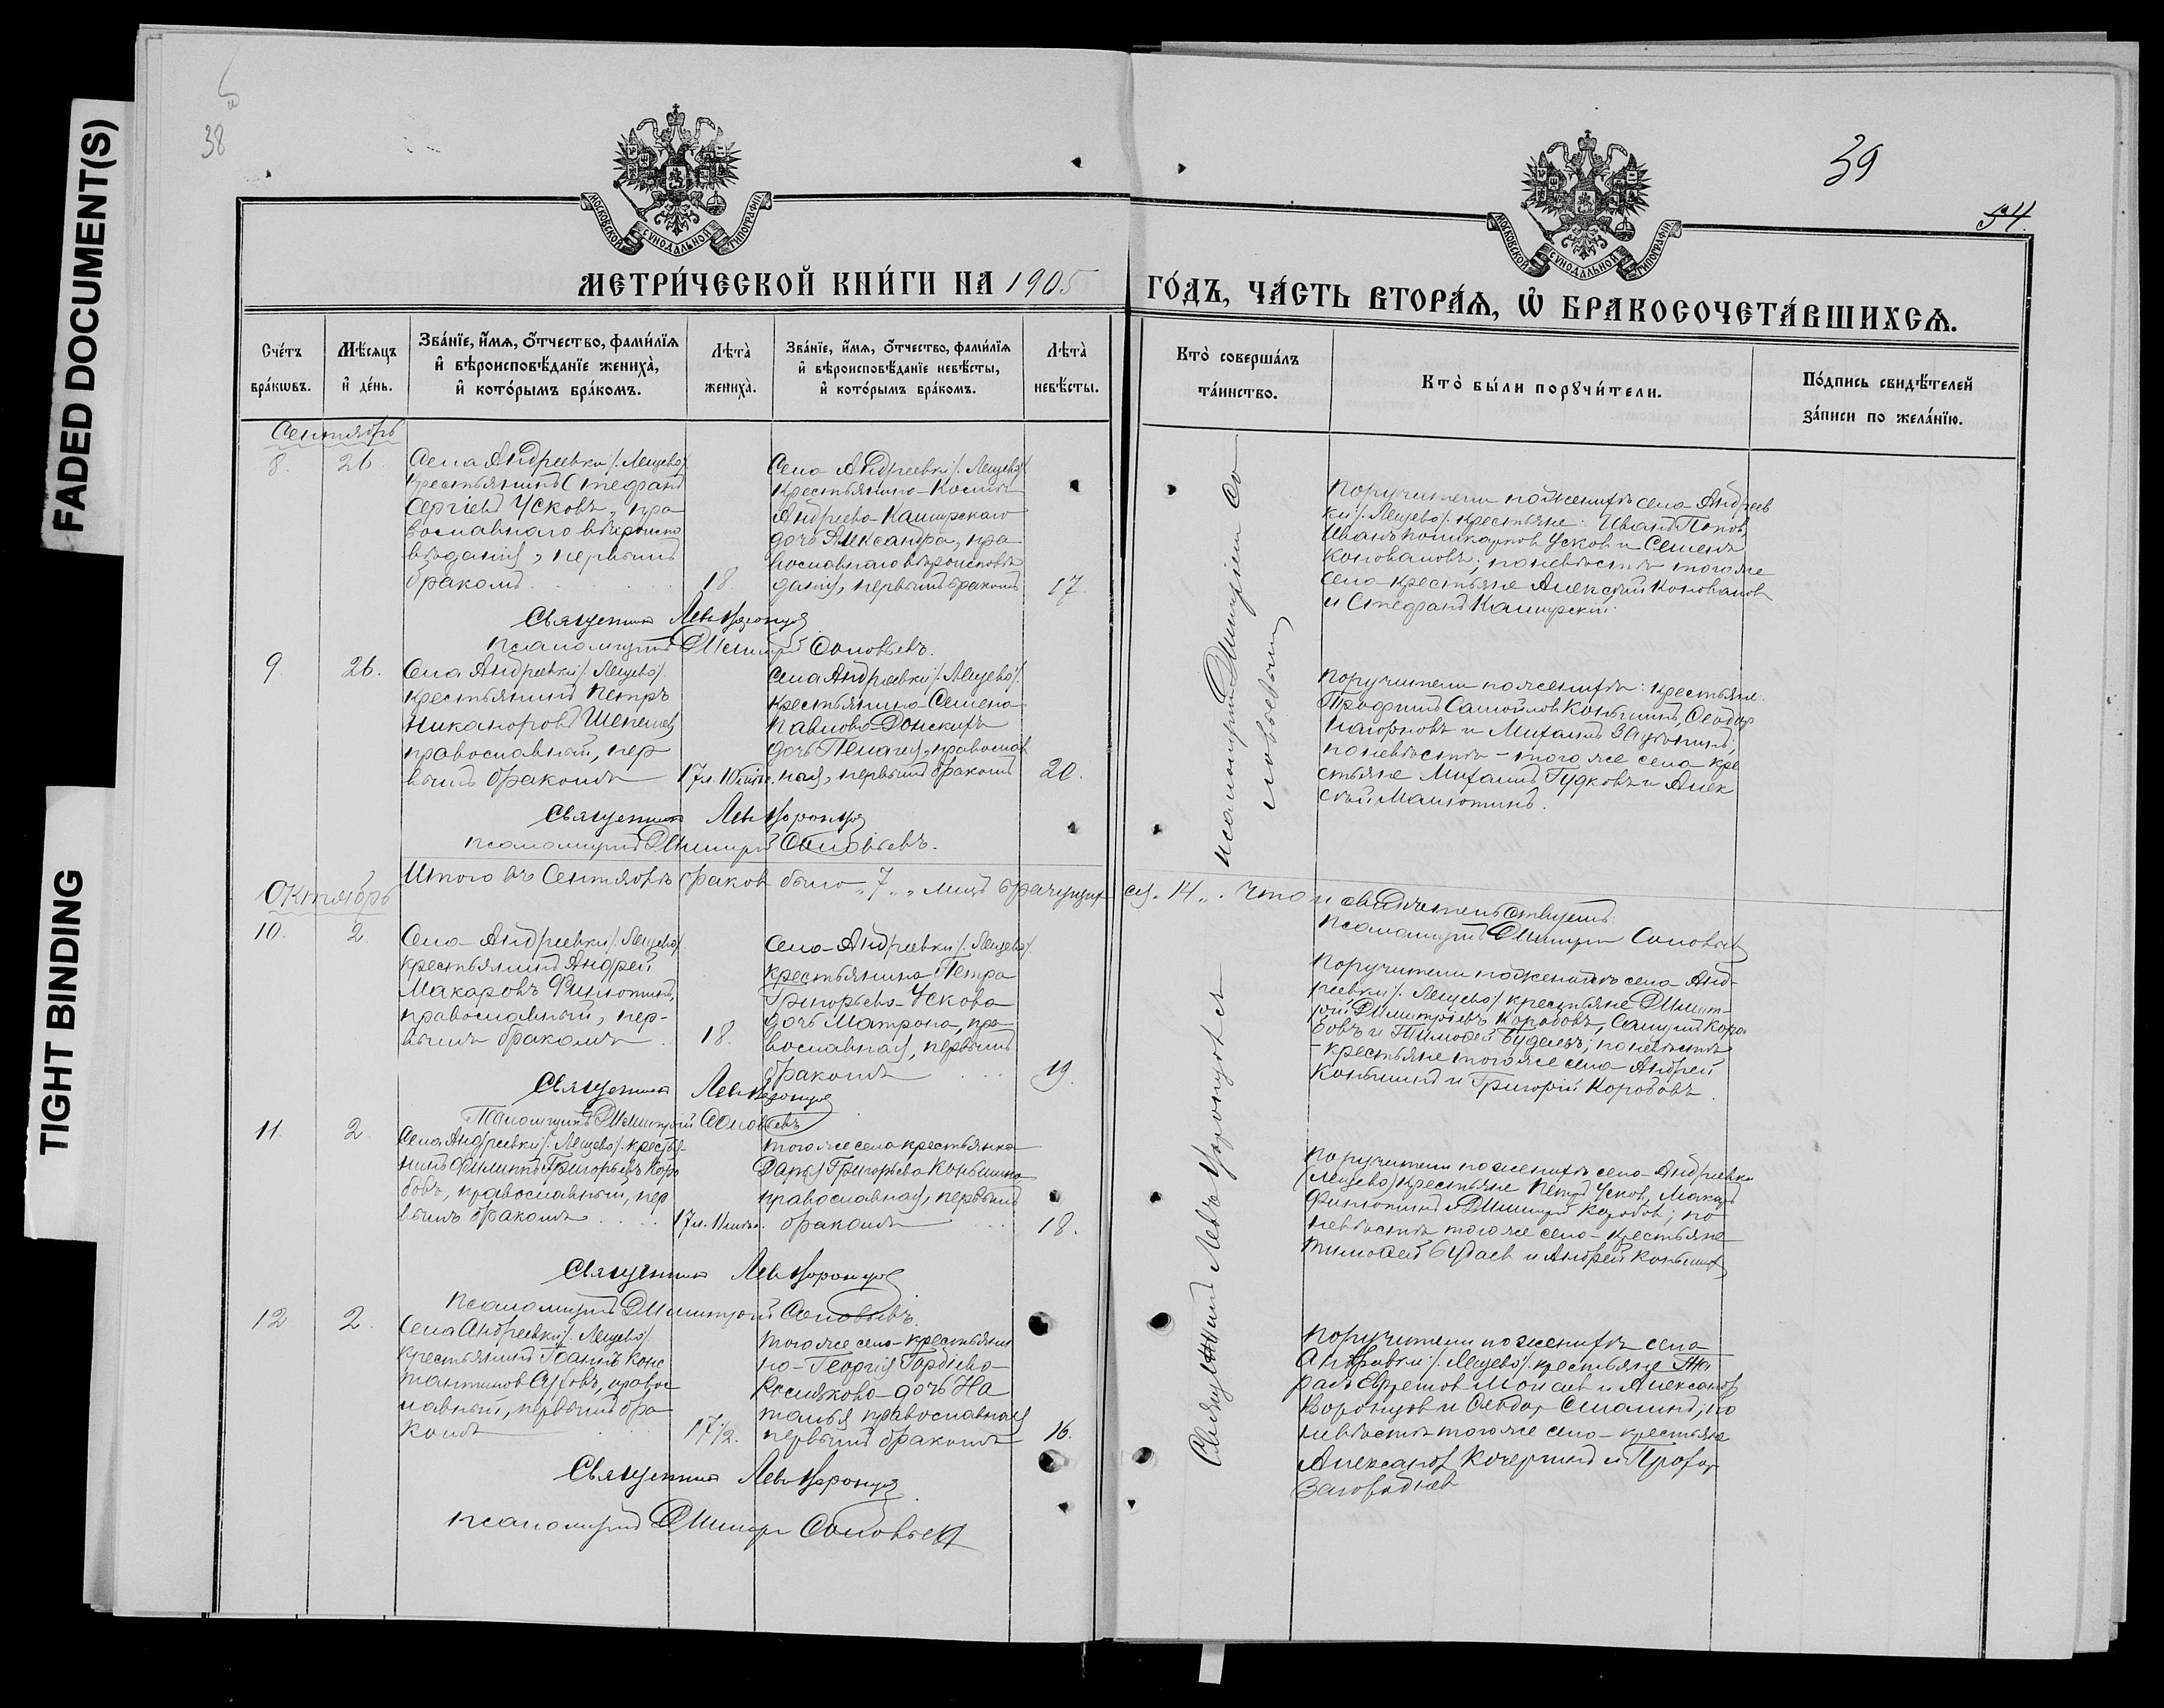 FADED DOCUMENT(S)
TIGHT BINDING
38
39
54.
МОСКОВСКОЙ СѴНОДАЛЬНОЙ ТИПОГРАФІИ
МОСКОВСКОЙ СѴНОДАЛЬНОЙ ТИПОГРАФІИ
МЕТРИ́ЧЕСКОЙ КНИ́ГИ НА 1905
ГО́ДЪ, ЧА́СТЬ ВТОРА́Ѧ, Ѡ҆ БРАКОСОЧЕТА́ВШИХСѦ.
Сче́тъ бра́кѡвъ.
Мѣ́сѧцъ и҆ де́нь.
Зва́нїе, и҆́мѧ, ѻ҆́тчество, фами́лїѧ
и҆ вѣроисповѣ́данїе жениха̀,
и҆ кото́рымъ бра́комъ.
Лѣта̀ жениха̀.
Зва́нїе, и҆́мѧ, ѻ҆́тчество, фами́лїѧ
и҆ вѣроисповѣ́данїе невѣ́сты,
и҆ кото́рымъ бра́комъ.
Лѣта̀ невѣ́сты.
Кто̀ соверша́лъ та́инство.
Кто̀ бы́ли порꙋчи́тели.
По́дпись свидѣ́телей
за́писи по жела́нїю.
Сентябрь
8. 26.
Села Андреевки /. Лещево/
крестьянинъ Стефанъ
Сергіевъ Усковъ, пра
вославнаго вѣроиспо
вѣданія, первымъ
бракомъ
18.
Села Андреевки /. Лещево/
крестьянина Космы
Андреева Каширскаго
дочь Александра, пра
вославнаго вѣроисповѣ
данія, первымъ бракомъ
17.
Поручители по женихѣ села Андреев
ки /. Лещево/. крестьяне: Иванъ Попов,
Иванъ Поликарпов Усков и Семенъ
Коновалов; по невѣстѣ того же
села крестьяне Алексѣй Коновалов
и Стефанъ Каширскій.
Священникъ Левъ Воронцов
псаломщикъ Дмитрій Соловьевъ.
9. 26.
Села Андреевки /. Лещево/.
крестьянинъ Петръ
Никаноровъ Шепелев,
православный, пер
вымъ бракомъ
17 л. 10 мѣс.
Села Андреевки /. Лещево/.
крестьянина Семена
Павлова Донскихъ
дочь Пелагія, православ
ная, первымъ бракомъ
20.
Поручители по женихѣ: крестьяне:
Трофимъ Самойлов Коньшинъ, Ѳеодор
и Михаилъ
по невѣстѣ – того же села кре
стьяне Михаилъ Гудковъ и Алек
сѣй Малютинъ.
Священникъ Левъ Воронцов
псаломщикъ Дмитрій Соловьевъ.
Итого въ Сентябрѣ браков было „7„ лицъ брачущих ся „14„. Что и свидѣтельствуемъ:
псаломщикъ Дмитрій Соловьев
Октябрь
10. 2.
Села Андреевки /. Лещево/
крестьянинъ Андрей
Макаровъ Филютинъ,
православный, пер-
вымъ бракомъ
18.
Села Андреевки /. Лещево/.
крестьянина Петра
Григорьева Ускова
дочь Матрона, пра
вославная, первымъ
бракомъ
19.
Поручители по женихѣ села Анд-
реевки /. Лещево/ крестьяне Димит-
рій Димитріевъ Коробовъ, Самуилъ Коро
бовъ и Тимоѳей Будаевъ; по невѣстѣ
– крестьяне того же села Андрей
Коньшинъ и Григорій Коробовъ.
Священникъ Левъ Воронцов
Псаломщикъ Дмитрій Соловьевъ
11. 2.
Села Андреевки /. Лещево/. крестья-
нинъ Филиппъ Григорьевъ Коро
бовъ, православный, пер
вымъ бракомъ
17 л. 11 мѣс.
того же села крестьянка
Дарья Григорьева Коньшина
православная, первымъ
бракомъ
18.
Поручители по женихѣ села Андреевки
(Лещево) крестьяне Петръ Усков, Макаръ
Филютинъ и Димитрій Коробов; по
невѣстѣ того же села крестьяне
Тимоѳей Будаев и Андрей Коньшин
Священникъ Левъ Воронцов
псаломщикъ Димитрій Соловьевъ.
12 2.
Села Андреевки /. Лещево/
крестьянинъ Іоаннъ Конс
тантинов православ
лавный, первымъ бра
комъ
17 1/2.
того же села крестьяни
на Георгія Гордіева
дочь На
талья православная
первымъ бракомъ
16.
Поручители по женихѣ села
Андреевки /. Лещево/. крестьяне
Ефремов и Александр
Воронцов и Ѳеодор по
невѣстѣ того же села крестьяне
Александр Кочергинъ и Прохор
Загороднев
Священникъ Левъ Воронцов
псаломщикъ Димитрій Соловьев
Священникъ Левъ Воронцов съ псаломщикомъ Димитріем Со
ловьевымъ